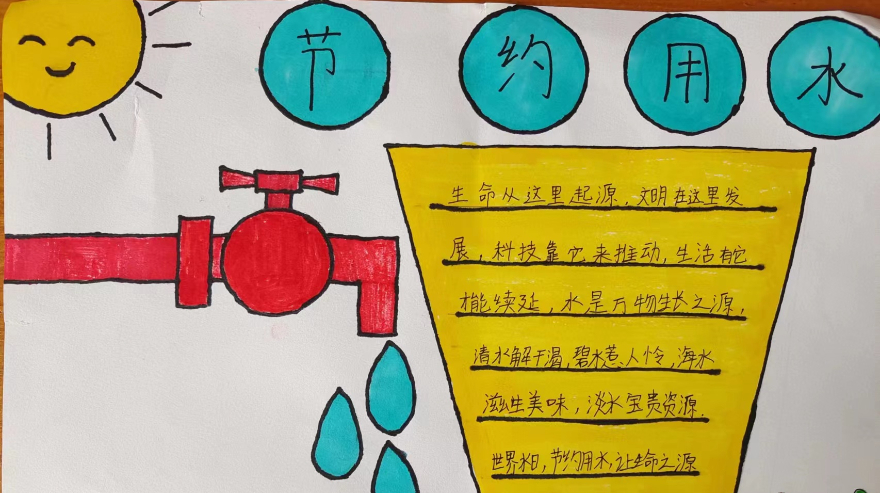 节约用水
生命从这里起源,文明在这里发
展,科技靠它来推动,生活有它
才能续延,水是万物生长之源,
清水解干渴,碧水惹人怜,海水
滋生美味,淡水宝贵资源.
世界水日,节约用水,让生命之源